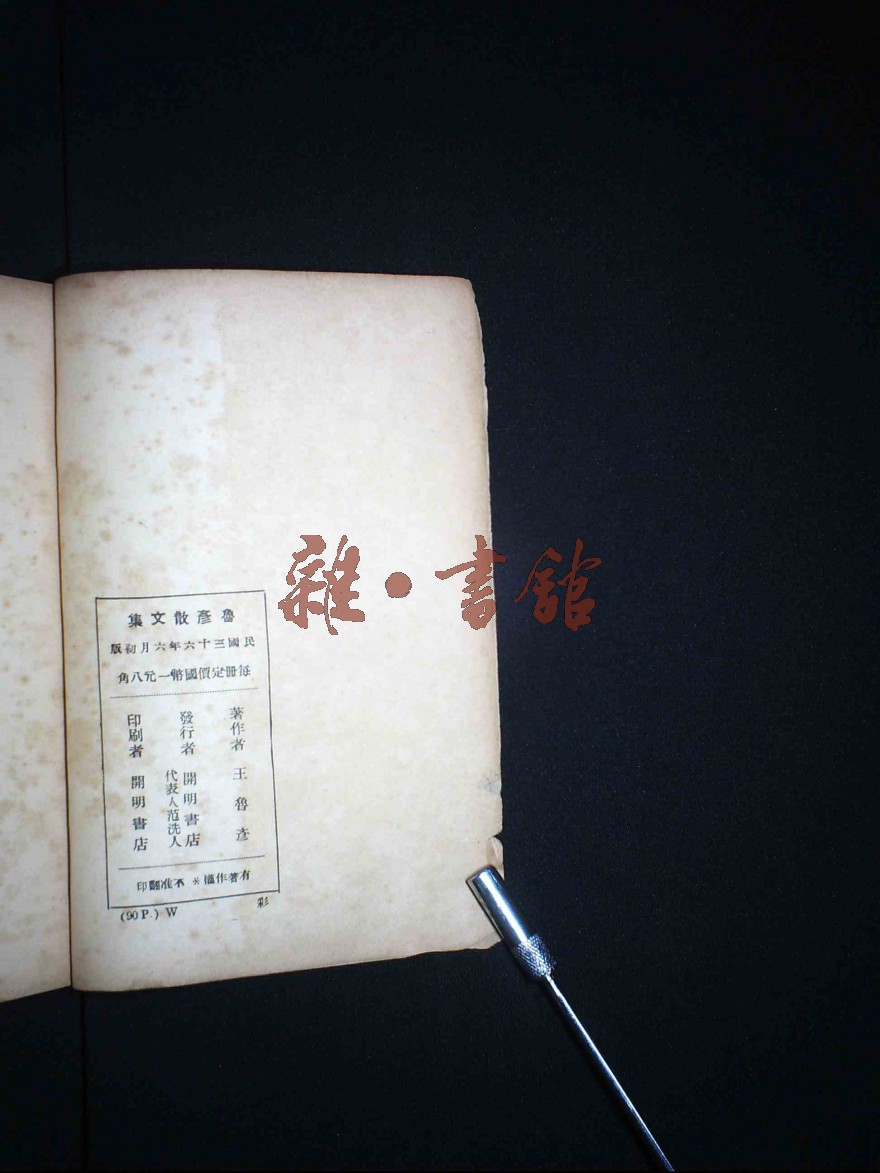 雜·書館
魯彥散文集
民國三十六年六月初版
每冊定價國幣一元八角
著作者 王魯彥
發行者 開明書店
代表人范洗人
印刷者 開明書店
有著作權＊不准翻印
(90 P.) W 彩